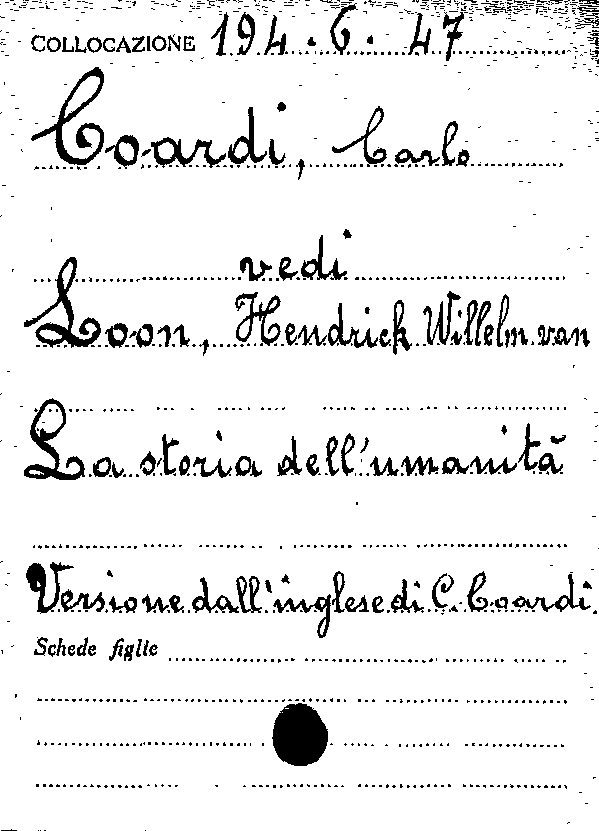 COLLOCAZIONE 194.6.47
Coardi, Carlo
vedi
Loon, Hendrick Willelm van
La storia dell'umanità
Versione dall'inglese di C. Coardi.
Schede figlie